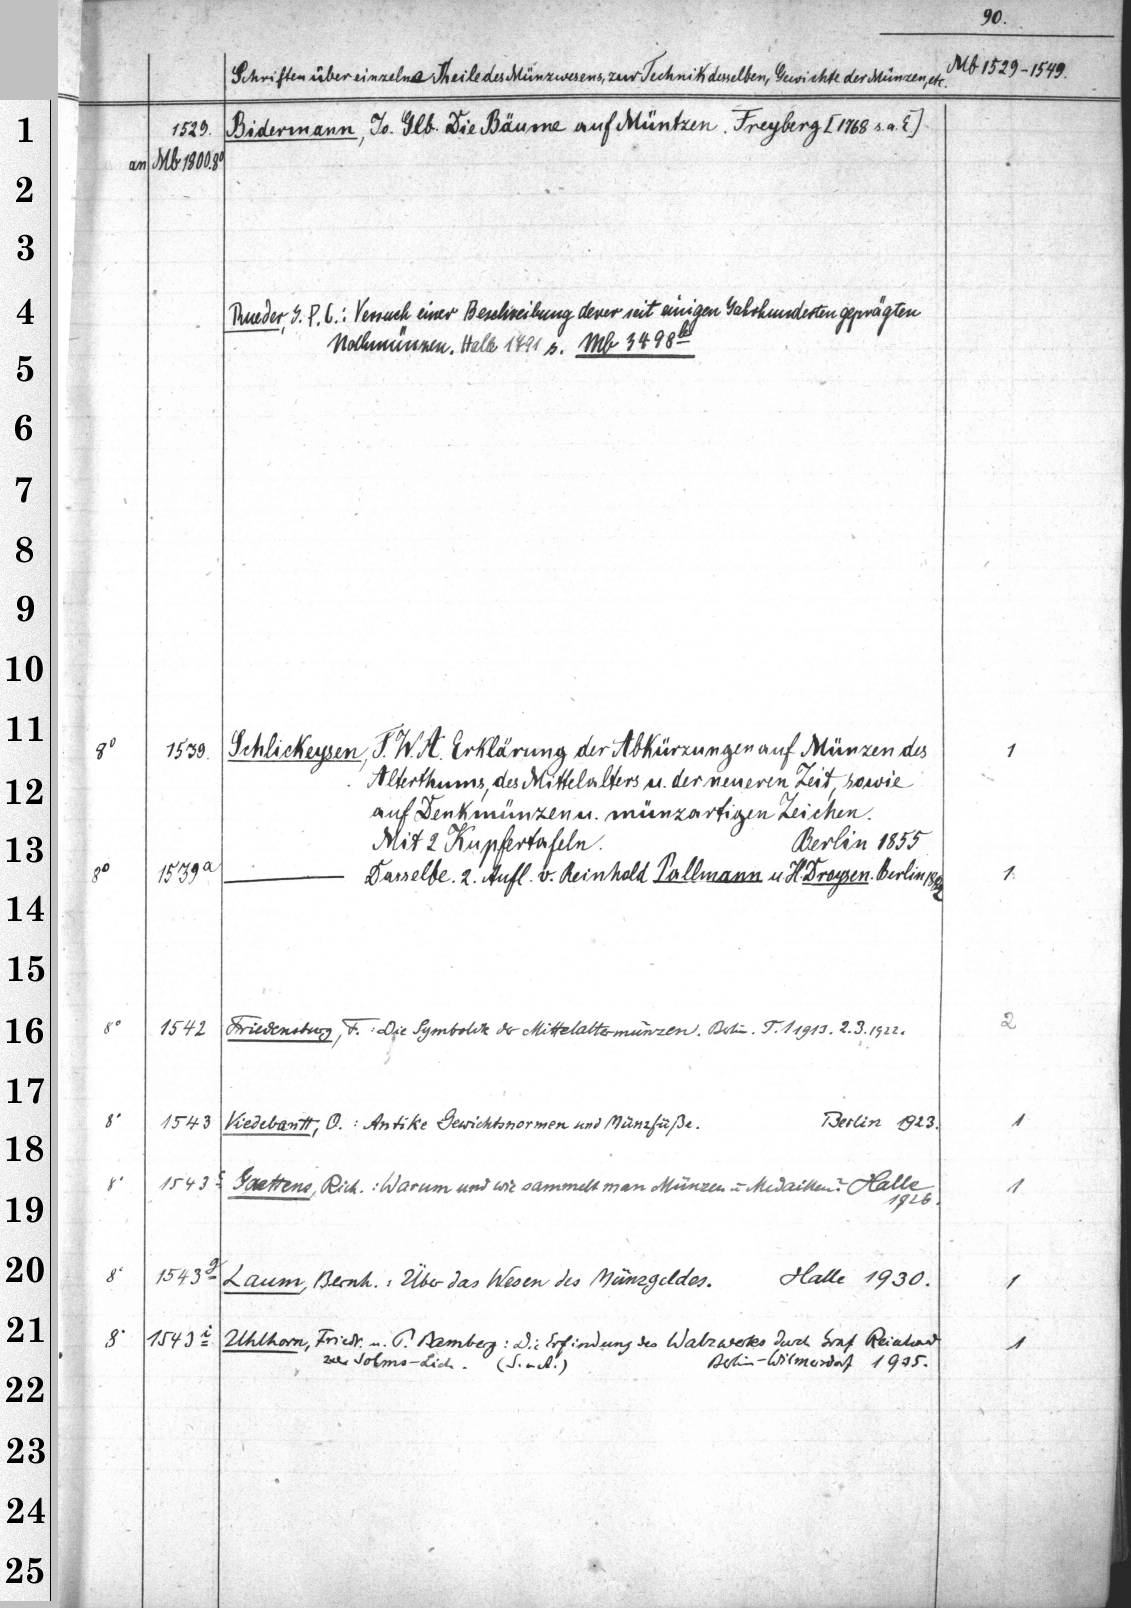 90.
Schriften über einzelne Theile des Münzwesens, zur Technik desselben, Gewichte der Münzen, etc. Mb 1529-1549.
1 1529. Bidermann, Jo. Glb. Die Bäume auf Müntzen. Freyberg [1768 s.a. E]
an Mb 1800.8°
2
3
4 Rueder, G. P. C.: Versuch einer Beschreibung derer seit einigen Jahrhunderten geprägten
Nothmünzen. Halle 1791 s. Mb 3498 b
5
6
7
8
9
10
11 8° 1539. Schlickeysen, F. W. A. Erklärung der Abkürzungen auf Münzen des 1
12 Alterthums, des Mittelalters u. der neueren Zeit, sowie
auf Denkmünzen u. münzartigen Zeichen.
13 Mit 2 Kupfertafeln. Berlin 1855
8° 1539a ——— Dasselbe. 2. Aufl. v. Reinhold Pallmann u H. Droysen. Berlin 1882 1.
14
15
16 8° 1542 Friedensburg, F.: Die Symbolik der Mittelaltermünzen. Berlin. T. 1 1913. 2.3. 1922. 2
17
8° 1543 Viedebantt, O.: Antike Gewichtsnormen und Münzfüße. Berlin 1923. 1
18
8° 1543 c Gaettens, Rich.: Warum und wie sammelt man Münzen u. Medaillen? Halle 1
19 1926.
20 8° 1543 g Laum, Bernh.: Über das Wesen des Münzgeldes. Halle 1930. 1
21 8° 1543 i Uhlhorn, Friedr. u. P. Bamberg: Die Erfindung des Walzwerkes durch Graf Reinhard 1
zu Solms-Lich. (S. u. A.) Berlin-Wilmersdorf 1935.
22
23
24
25